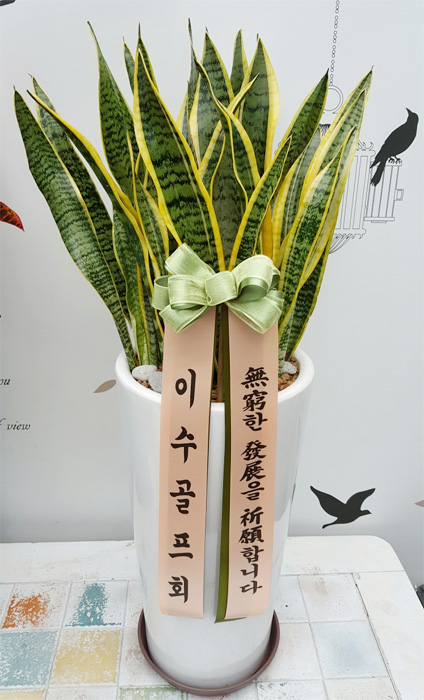 이수골프회
無窮한 發展을 祈願합니다
ou
f view